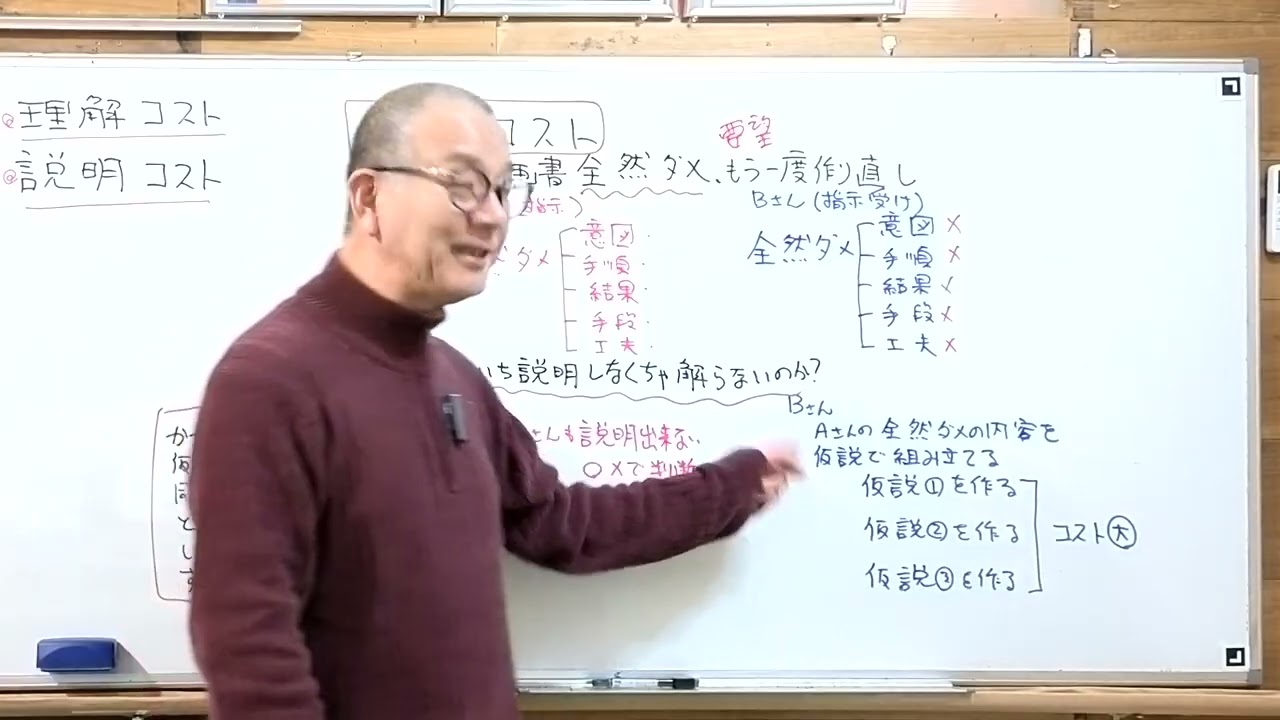 理解コスト
説明コスト
コスト
画書全然ダメ、もう一度作り直し
要望
指示)
ダメ
意図
手順
結果
手段
工夫
Bさん(指示受け)
全然ダメ
意図 ×
手順 ×
結果 ✓
手段 ×
工夫 ×
いち説明しなくちゃ解らないのか?
さんも説明出来ない
○×で判断
Bさん
Aさんの全然ダメの内容を
仮説で組み立てる
仮説①を作る
仮説②を作る
仮説③を作る
コスト大
か
仮
同
と
し